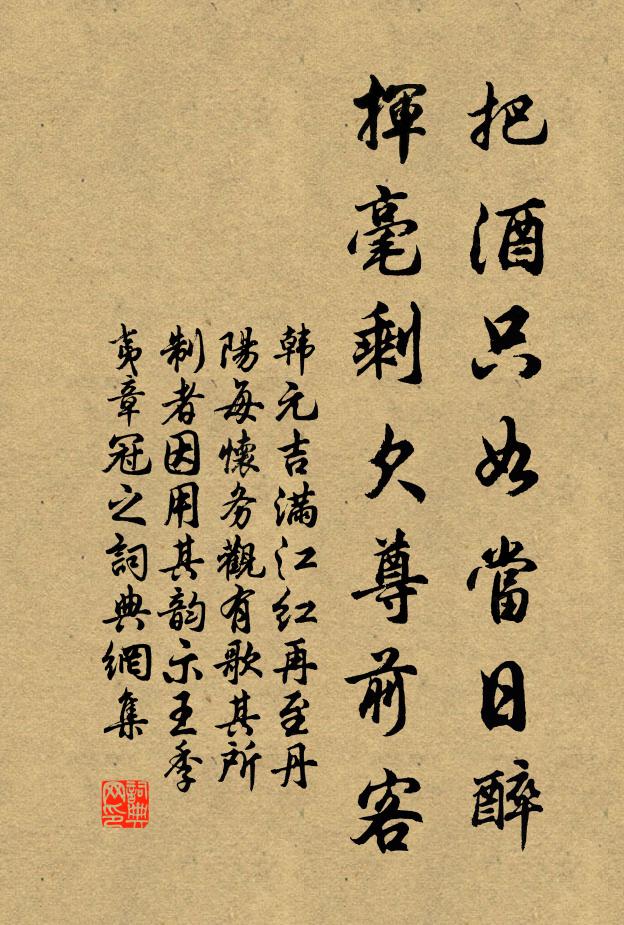 把酒只如當日醉
揮毫剩欠尊前客
韩元吉满江红再至丹
陽每懷务觀有歌其所
制者因用其韵示王季
夷章冠之詞典網集
詞典网印